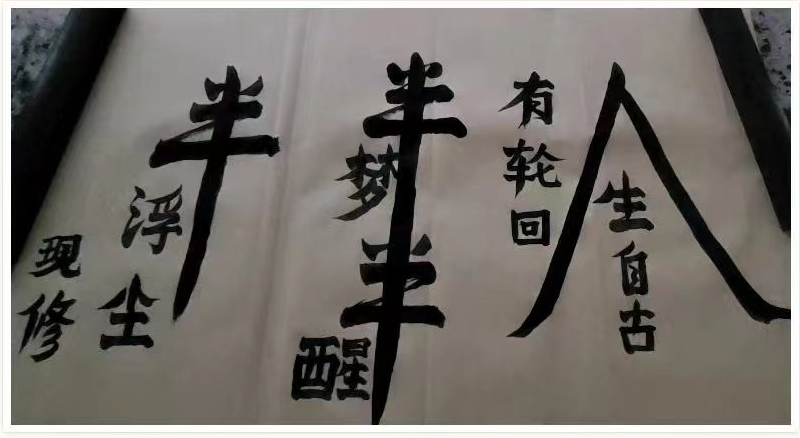 人生自古
有轮回
半梦半醒
半浮尘
现修